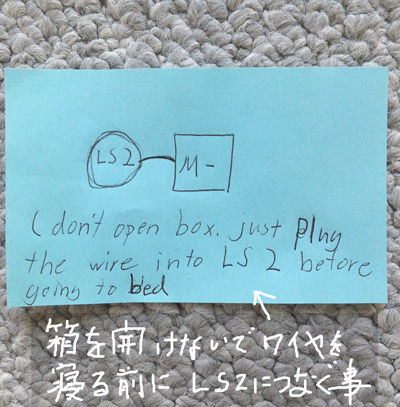 LS2 M-
(don't open box. just plug
the wire into LS 2 before
going to bed
箱を開けないでワイヤを
寝る前にLS2につなぐ事